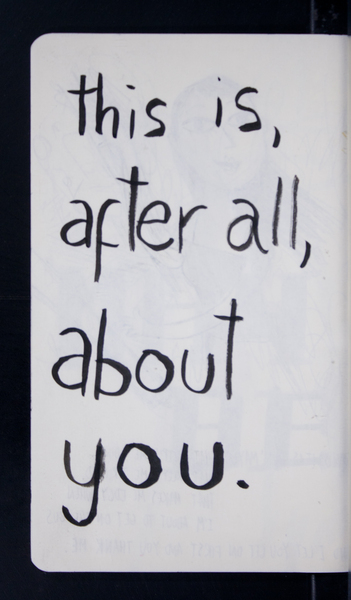 this is,
after all,
about
you.